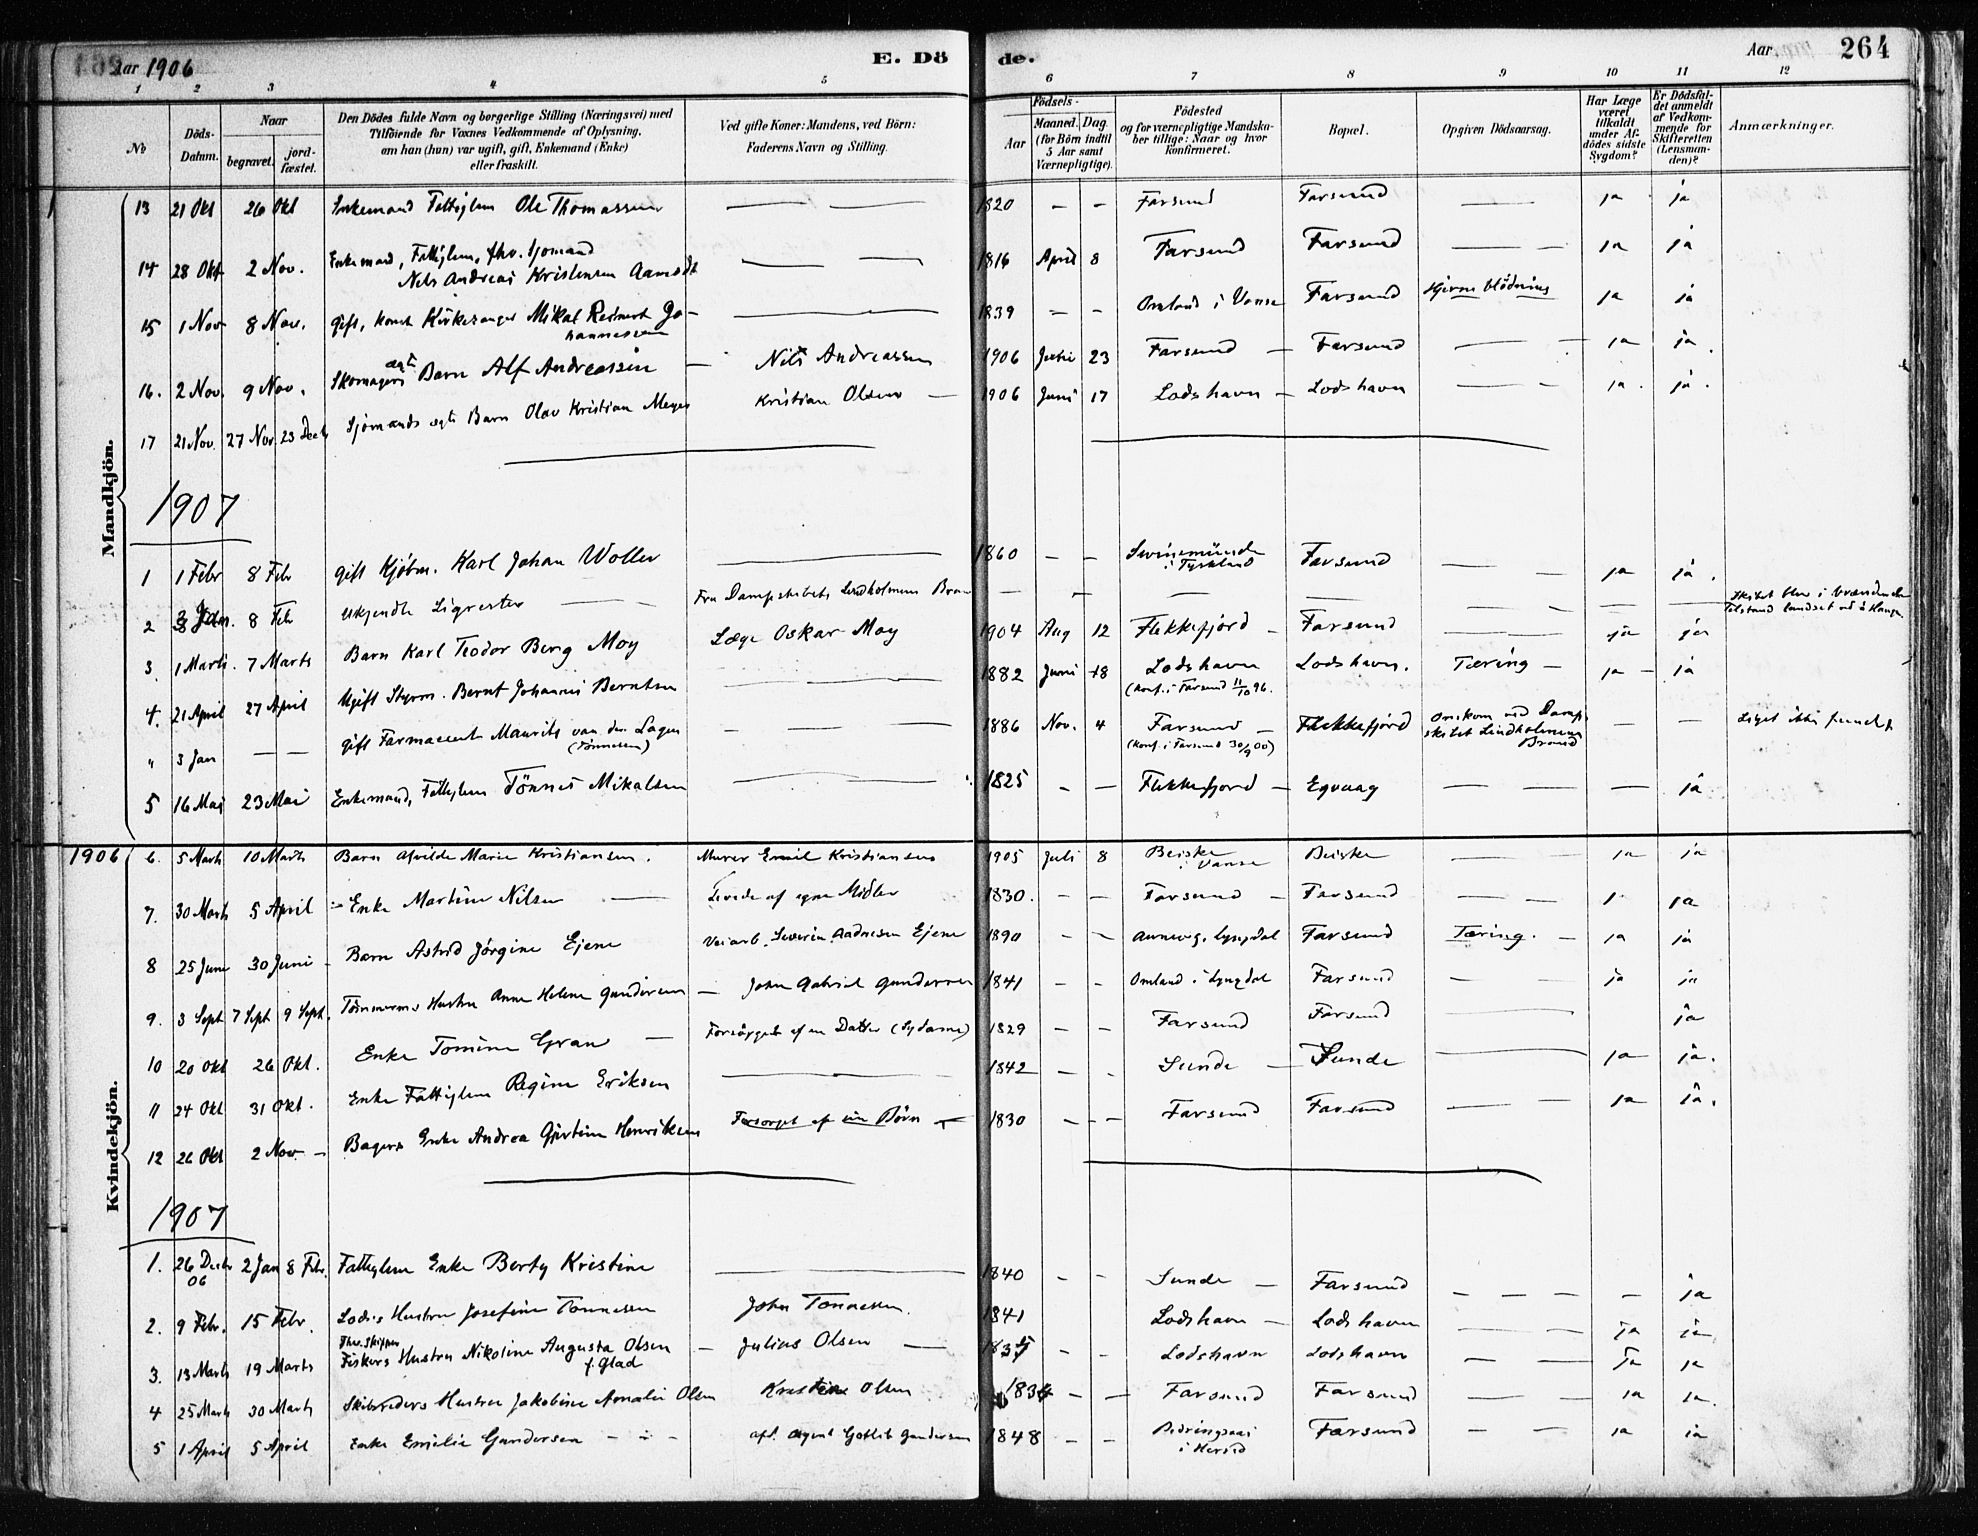 Aar 1906 E. Dö de. Aar 264
1 2 3 4 5 6 7 8 9 10 11 12
No
Döds-Datum.
Naar
begravet.
jordfæstet.
Den Dödes fulde Navn og borgerlige Stilling (Næringsvei) med
Tilföiende for Voxnes Vedkommende af Oplysning,
om han (hun) var ugift, gift, Enkemand (Enke)
eller fraskilt.
Ved gifte Koner: Mandens, ved Börn:
Faderens Navn og Stilling.
Födsels-
Aar
Maaned. Dag.
(for Börn indtil
5 Aar samt
Værnepligtige).
Födested
og for værnepligtige Mandskaber tillige: Naar og hvor
konfirmeret.
Bopæl.
Opgiven Dödsaarsag.
Har Læge været tilkaldt under Afdødes sidste Sygdom?
Er Dödsfaldet anmeldt af Vedkommende for Skifteretten (Lensmanden)?
Anmærkninger.
Mandkjön.
13 21 Okt 26 Okt Enkemand Fattiglem Ole Thomassen — — 1820 - - Farsund Farsund — ja ja
14 28 Okt 2 Nov. Enkemand, Fattiglem, fhv. Sjømand
Nels Andreas Kristensen Aamodt — — 1816 April 8 Farsund Farsund — - ja ja
15 1 Nov 8 Nov. gift, Kirkesanger Mikal Reinert Jo-
hannessen — 1839 - - Omland i Vanse Farsund Hjerneblødning ja ja
16. 2 Nov. 9 Nov. Skomagers ægte Barn Alf Andreassen — Nils Andreassen 1906 Julii 23 Farsund — Farsund — - ja ja.
17 21 Nov. 27 Nov. 23 Decb Sjømands ægte Barn Olav Kristian Meyer Kristian Olsen — 1906 Juni 17 Lodshavn — Lodshavn — - ja. ja.
1907
1 1 Febr 8 Febr gift Kjøbm. Karl Johan Woller — 1860 - - Swinemünde
i Tyskland Farsund — - ja ja.
2 3 Jan. 8 Feb Ukjendte Ligrester — Fra Dampskibets Lindholmens Brand — - — — - — — Skibet blev i brændende
Tilstand landsat ved
3. 1 Marts. 7 Marts Barn Karl Teodor Berg Moy Læge Oskar Moy 1904 Aug 12 Flekkefjord — Farsund — ja ja
4. 21 April 27 April Ugift Styrm. Bernt Johannes Berntsen — — 1882 Juni 18 Lodshavn
(konf. i Farsund 11/10 96. Lodshavn. Tæring — ja — ja
" 3 Jan — — gift Farmaceut Maurits van der Lagen
(Tønnesen) - — — 1886 Nov. 4 Farsund —
(konf. i Farsund 30/9 00) Flekkefjord Omkom ved Damp-
skibet Lindholmens
Brand — — Liget ikke fundet
5 16 Mai 23 Mai Enkemand, Fattiglem Tönnes Mikalsen — — 1825 - — Flekkefjord — Egvaag — — — — ja
Kvindekjön.
1906 6. 5 Marts 10 Marts Barn Marie Kristiansen. Murer Emil Kristiansen 1905 Juli 8
i Vanse — - ja ja
7. 30 Marts 5 April Enke Martine Nilsen — Levede af egne Midler 1830. - - Farsund — Farsund — — ja
8 25 Juni 30 Juni - Barn Astrid Jörgine Ejene Veiarb. Severin Aadnesen Ejene 1890 - - Lyngdal Farsund Tæring. — ja ja
9. 3 Sept 7 Sept 9 Sept. Tömmerms Hustru Anne Helene Gundersen — John Gabriel Gundersen 1841 - - Omland i Lyngdal Farsund — - ja ja
10 20 Okt 26 Okt. Enke Tomine Gran — Forsörget af en Datter 1829 - - Farsund Farsund — — ja
11 24 Okt 31 Okt. Enke Fattiglem Regine Eriksen — 1842 - - Sunde — Sunde — ja ja.
12 26 Okt 2 Nov — Bagers Enke Andrea Gjertine Henriksen Forsörget af sin Börn — 1830 - - Farsund Farsund — - ja ja.
1907
1. 26 Decbr
06 2 Jan 8 Feb. Fattiglem Enke Berty Kristine — 1840 - - Sunde — Farsund - - - - ja
2. 9 Febr. 15 Febr. Lods's Hustru Josefine Tönnesen John Tonnesen. 1841 Lodshavn — Lodshavn — - ja ja
3. 13 Marts 19 Marts fhv. Skipper
Fiskers Hustru Nikoline Augusta Olsen
f. Glad — Julius Olsen — - - Lodshavn Lodshavn — - ja ja
4 25 Marts 30 Marts Skibsreders Hustru Jakobine Amalie Olsen Olsen 1834 - — Farsund Farsund — — ja ja.
5 1 April 5 April Enke Emilie Gundersen - - - afd. Agent Gotlib Gundersen 1848 - -
i Farsund — — ja ja